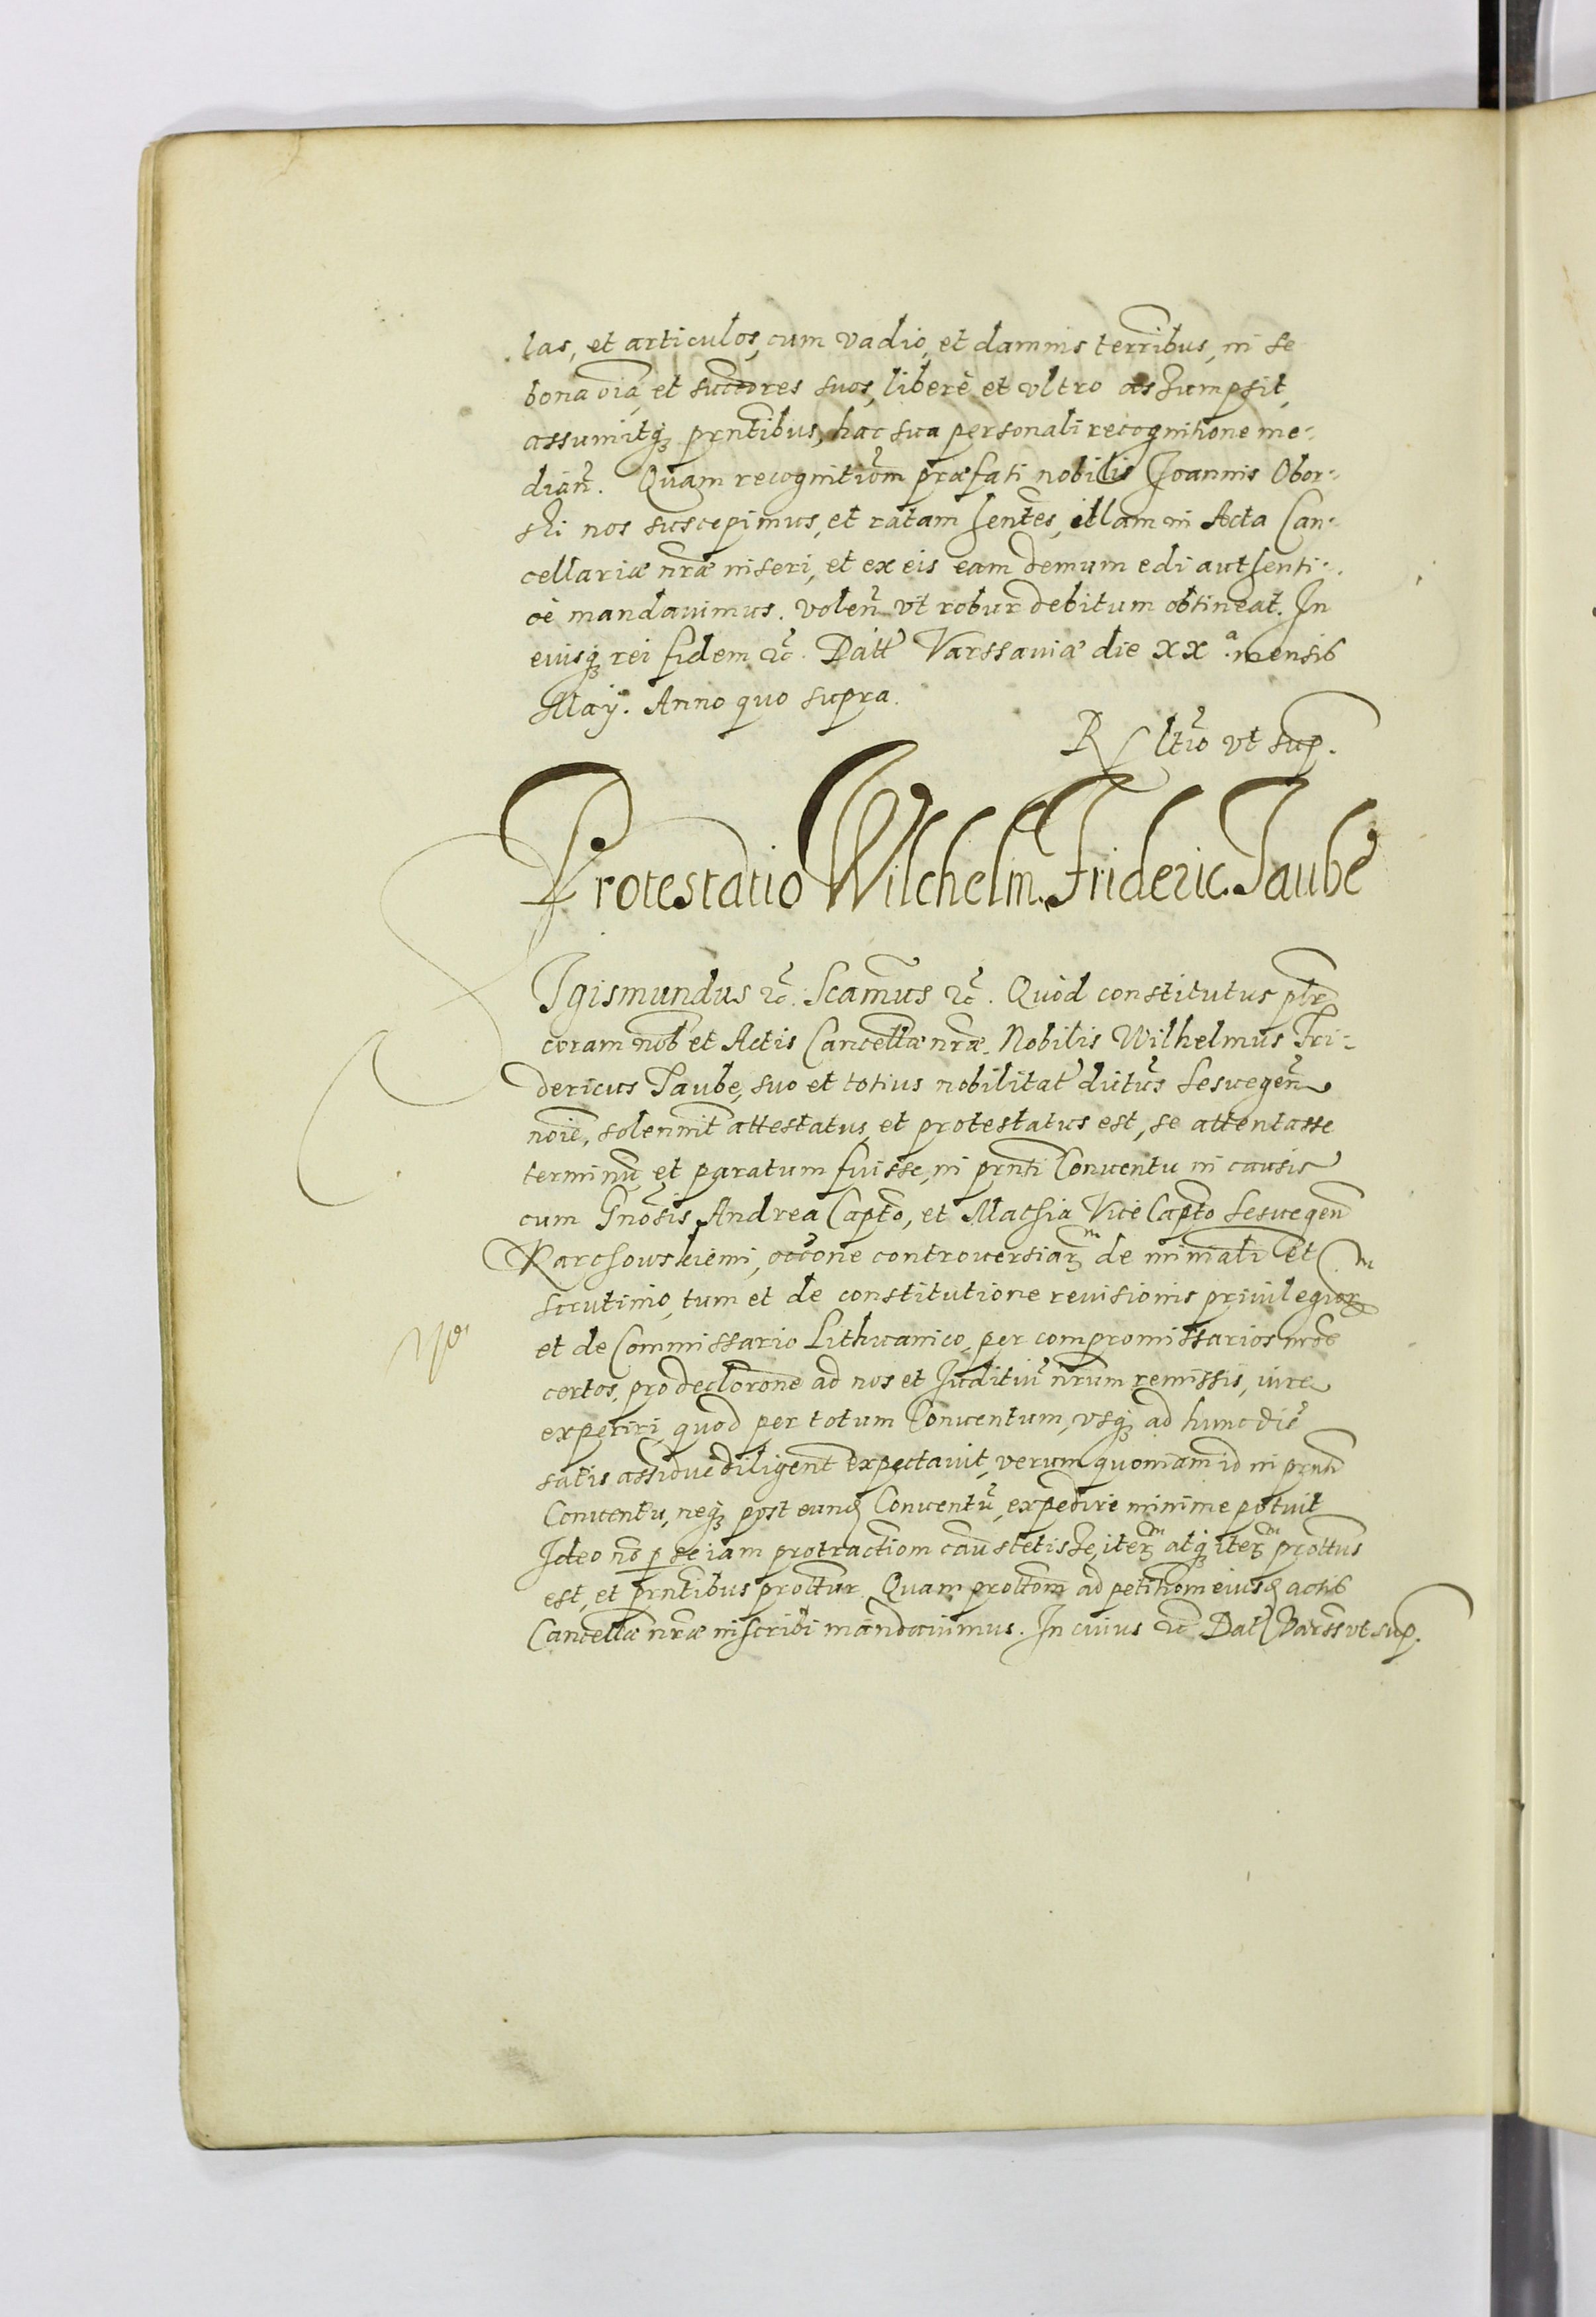 las, et articulos, cum vadio, et damnis terribus, in se
bona oĩa, et succõres suos, liberè et vltro assumpsit,
assumitq₃ prñtibus, hac sua personali recognitione me-
diañ. Quam recognitiõm præfati nobilis Joannis Obor-
ski nos suscepimus, et ratam hentẽs, illam in Acta Can-
cellariæ nrãe inseri, et ex eis eam demum edi authenti-
cè mandauimus. voleñ vt robur debitum obtineat. In
euisq₃ rei fidem ꝛc̃. Datt Varssauiæ die XX.ª mensis
Maÿ. Anno quo supra.
R ltĩo vt sup.
Protestatio Wilchelm. Frideric. Taube
Igismundus ꝛc̃. Scam̃us ꝛc̃. Quòd constitutus pltr̃
coram nob̃ et Actis Cancellæ nrãe. Nobilis Wilhelmus Fri-
dericus Taube, suo et totius nobilitat̃ dictus̃ Sesuegeñ
noĩe, solennit̃ attestatus, et protestatus est, se attentasse
terminũ et paratum fuisse, in prñti Conuentu in causis
cum Gnõsis Andrea Captõ, et Mathia Vice Captõ Sesuegeñ
Karchowskiemi, occõne controuersiar₃ de minĩali et
scrutinio, tum et de constitutione reuisionis priuilegior₃
et de Commissario Lithuanico, per compromissarios inde
certos, pro declorõne ad nos et Juditiũ nrũm remissis, iure
experiri, quod per totum Conuentum, vsq₃ ad hunc diẽ
satis assidue diligent̃ expectauit, verum quoniam id in prñti
Conuentu, neq₃ post eund Conuentũ, expedire minime potuit
Ideo nõ p se iam protractiõm cau stetisse, iter₃ atq₃ iter₃ prottus̃
est, et prñtibus prottur̃. Quam prottõm ad petitiõm eiusd actis
Cancellæ nrãe inscribi mandauimus. In cuius ꝛc̃ Dat Varss vt sup.